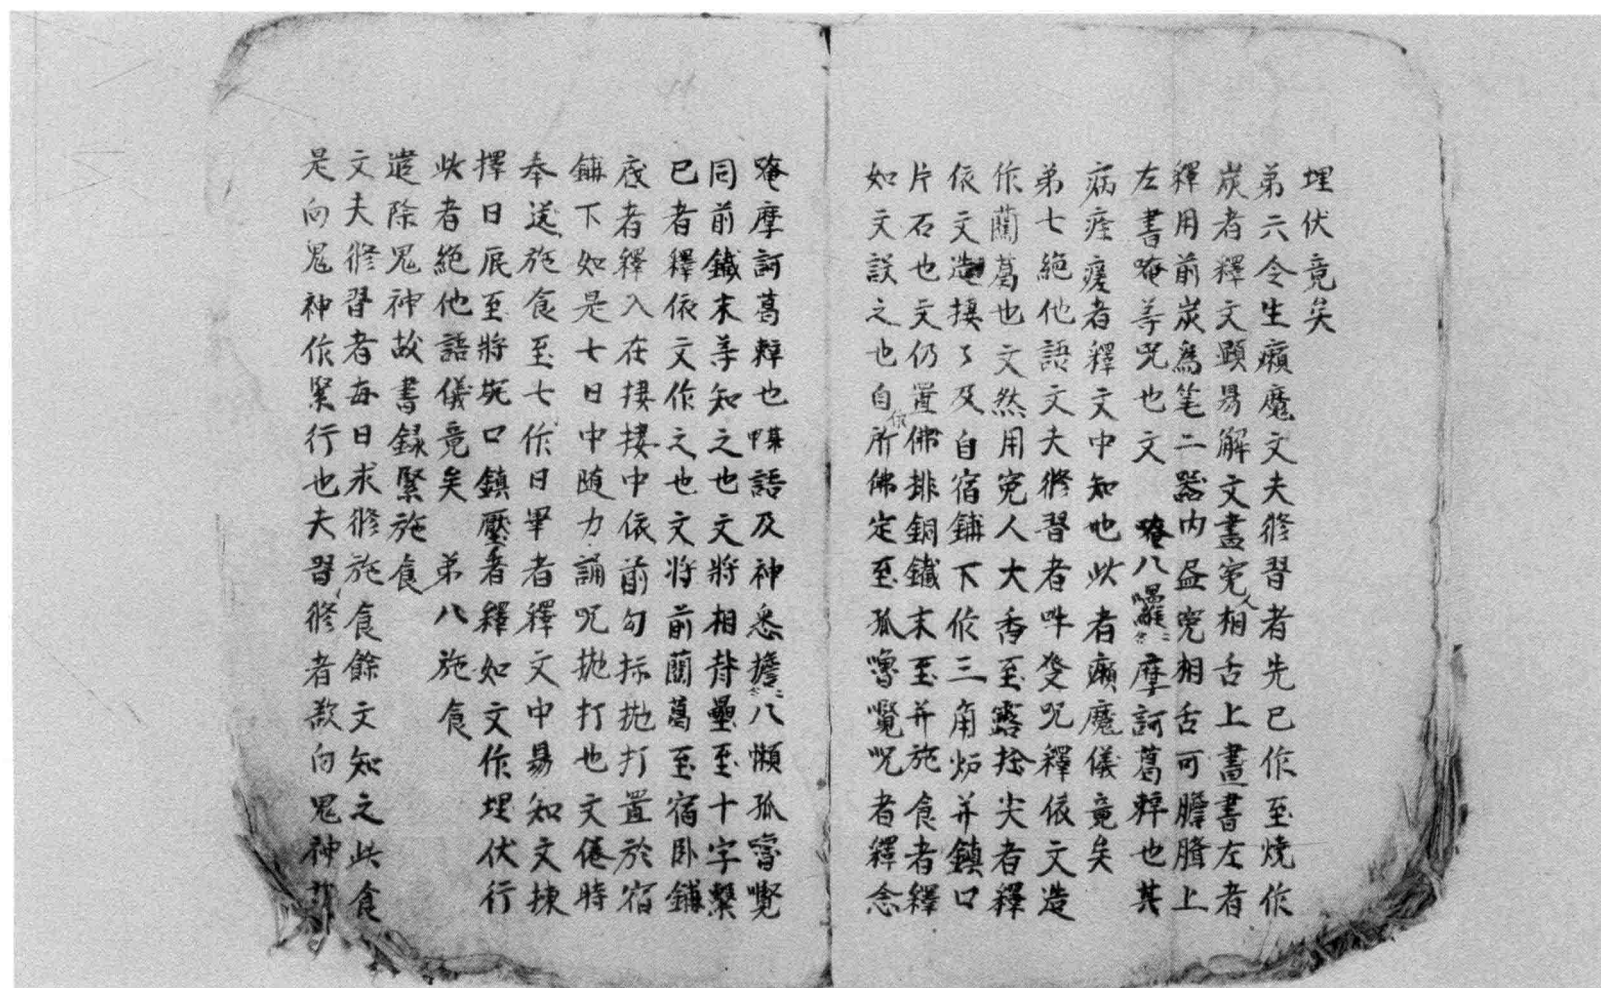 埋伏竟矣
弟六令生癩魔文夫修習者先已作至燒作
炭者釋文顯易解文畫冤人相舌上畫書左者
釋用前炭為笔二器内盈冤相舌可膽腊上
左書唵等咒也文 唵八囉二合摩訶葛辢也其
病痊瘥者釋文中知也此者癩魔儀竟矣
弟七絶他語文夫修習者吽癹咒釋依文造
作蘭葛也文然用冤人大香至露捨尖者釋
依文造摟了及自宿鋪下作三角炉并鎮口
片石也文仍置佛排銅鐵末至并施食者釋
如文説之也自所依佛定至孤嚕覽咒者釋念
唵摩訶葛辢也某語及神悉擔二合八懶孤嚕覽
同前鐵末等知之也文將相背壘至十字繫
已者釋依文作之也文將前蘭葛至宿卧鋪
底者釋入在摟摟中依前勾标抛打置於宿
鋪下如是七日中随力誦咒抛打也文倦時
奉送施食至七作日畢者釋文中易知文揀
擇日辰至將死口鎮壓者釋如文作埋伏行
此者絶他語儀竟矣 弟八施食
遣除鬼神故書録緊施食
文夫修習者每日求修施食餘文知之此食
是向鬼神作緊行也夫習修者欲向鬼神